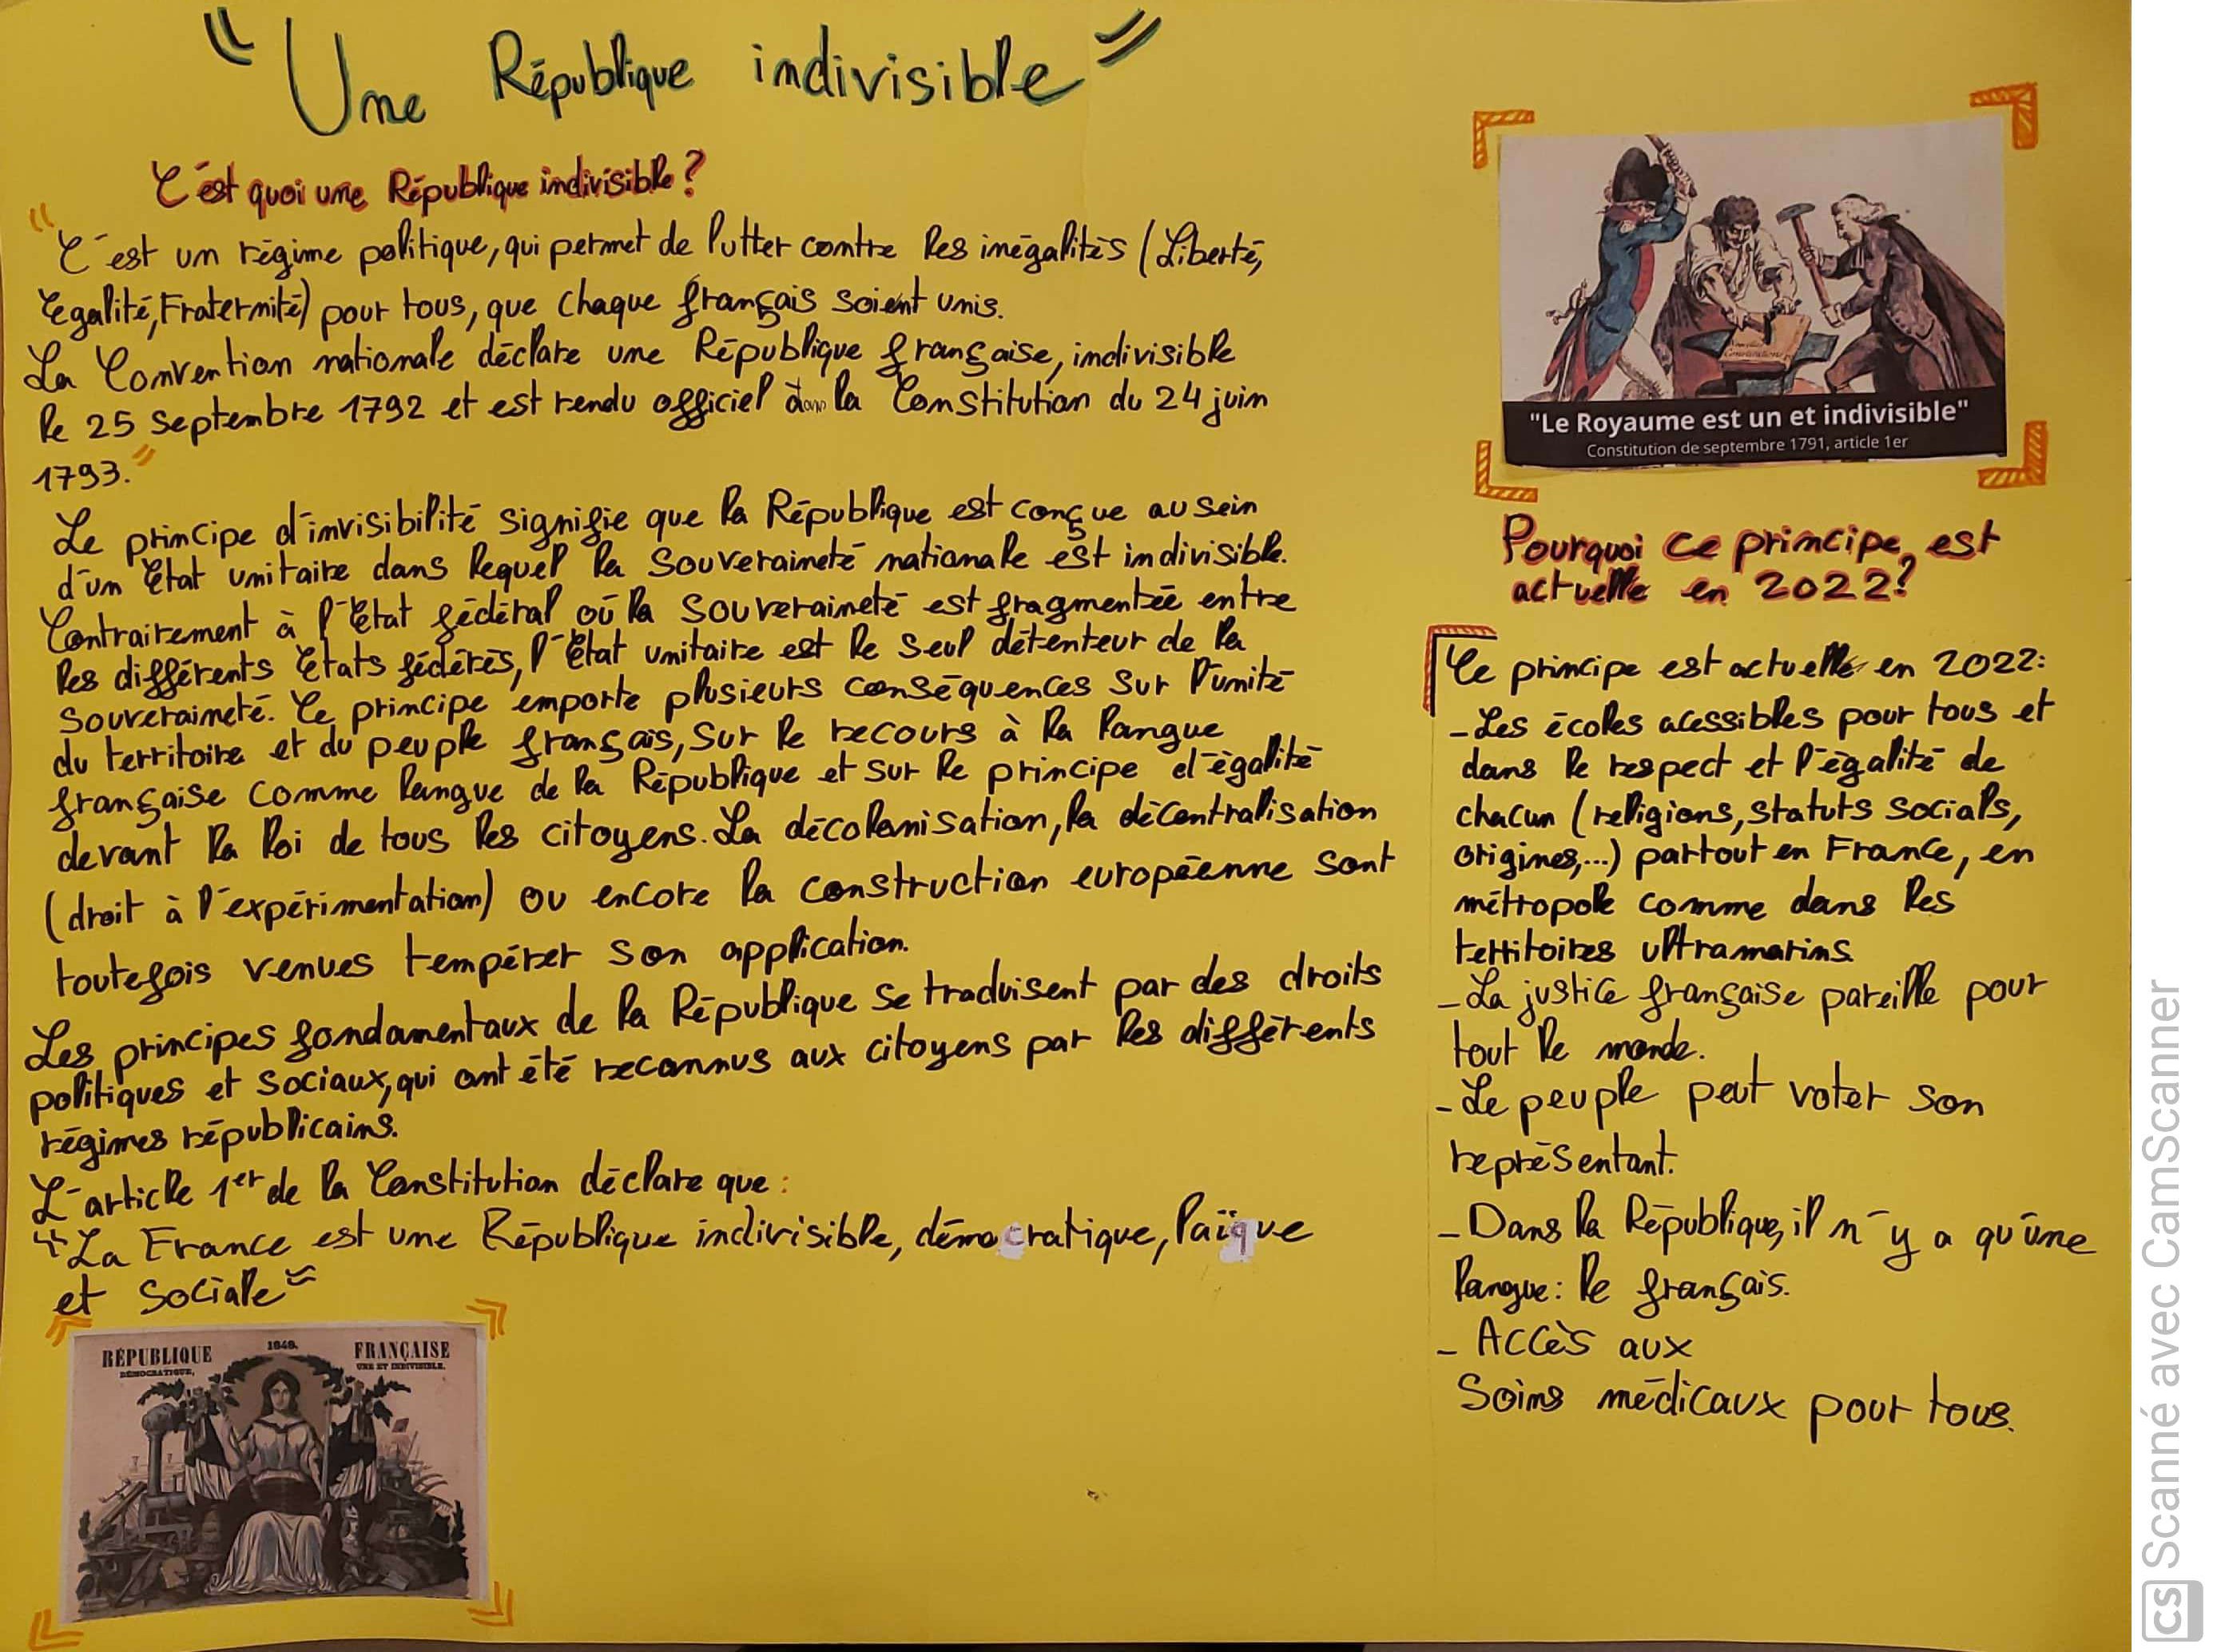 "Une République indivisible"
C'est quoi une République indivisible?
"C'est un régime politique, qui permet de lutter contre les inégalités (Liberté,
Egalité, Fraternité) pour tous, que chaque français soient unis.
La Convention nationale déclare une République française, indivisible
le 25 septembre 1792 et est rendu officiel dans la Constitution du 24 juin
1793."
Le principe d'invisibilité signifie que la République est conçue au sein
d'un Etat unitaire dans lequel la Souveraineté nationale est indivisible.
Contrairement à l'Etat fédéral où la souveraineté est fragmentée entre
les différents Etats fédérés, l'Etat unitaire est le seul détenteur de la
souveraineté. Ce principe emporte plusieurs conséquences sur l'unité
du territoire et du peuple français, sur le recours à la langue
française comme langue de la République et sur le principe d'égalité
devant la loi de tous les citoyens. La décolonisation, la décentralisation
(droit à l'expérimentation) ou encore la construction européenne sont
toutefois venues tempérer son application.
Les principes fondamentaux de la République se traduisent par des droits
politiques et sociaux, qui ont été reconnus aux citoyens par les différents
régimes républicains.
L'article 1er de la Constitution déclare que :
"La France est une République indivisible, démocratique, laïque
et sociale"
RÉPUBLIQUE 1848. FRANÇAISE
DÉMOCRATIQUE, UNE ET INDIVISIBLE.
"Le Royaume est un et indivisible"
Constitution de septembre 1791, article 1er
Pourquoi ce principe, est
actuelle en 2022?
Ce principe est actuelle en 2022:
- Les écoles acessibles pour tous et
dans le respect et l'égalité de
chacun (religions, statuts socials,
origines,...) partout en France, en
métropole comme dans les
territoires ultramarins
- La justice française pareille pour
tout le monde.
- Le peuple peut voter son
représentant.
- Dans la République, il n'y a qu'une
langue: le français.
- Accès aux
soins médicaux pour tous.
CS Scanné avec CamScanner